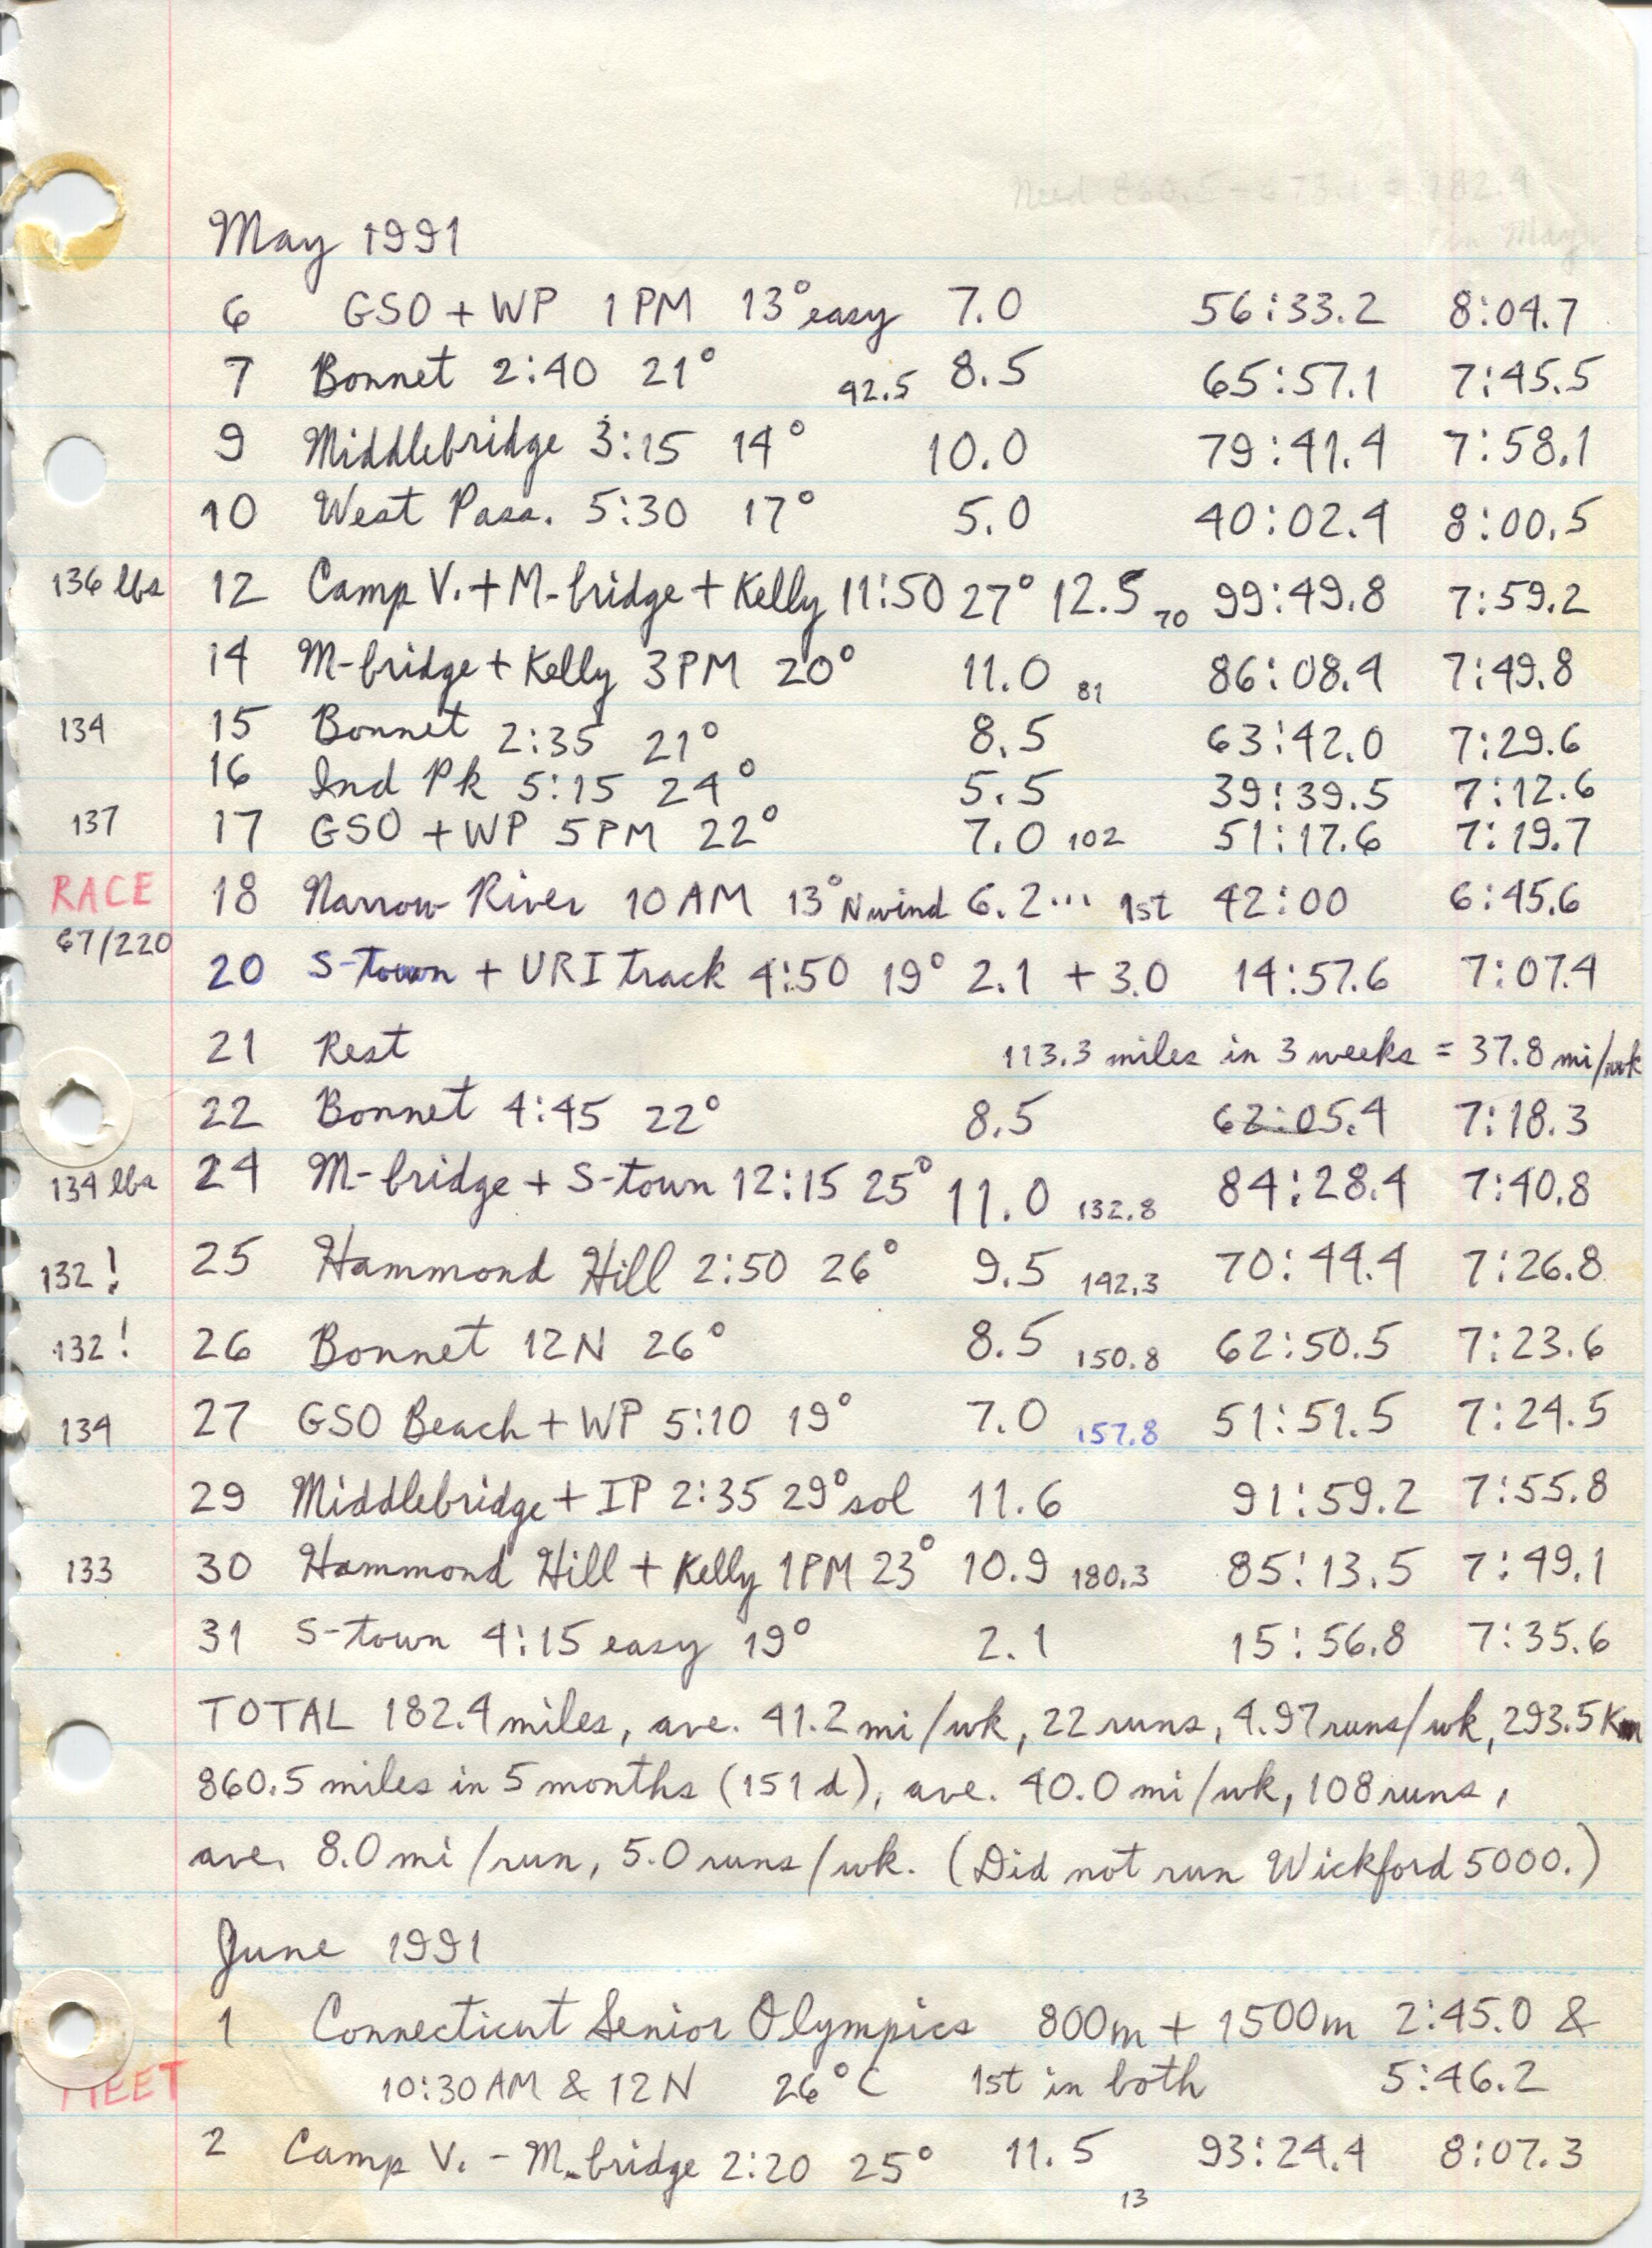 Need 860.5 - 673.1 = 182.4
in May
May 1991
6 GSO + WP 1 PM 13° easy 7.0 56:33.2 8:04.7
7 Bonnet 2:40 21° 42.5 8.5 65:57.1 7:45.5
9 Middlebridge 3:15 14° 10.0 79:41.4 7:58.1
10 West Pass. 5:30 17° 5.0 40:02.4 8:00.5
136 lbs 12 Camp V. + M-bridge + Kelly 11:50 27° 12.5 70 99:49.8 7:59.2
14 M-bridge + Kelly 3PM 20° 11.0 81 86:08.4 7:49.8
134 15 Bonnet 2:35 21° 8.5 63:42.0 7:29.6
16 Ind Pk 5:15 24° 5.5 39:39.5 7:12.6
137 17 GSO + WP 5PM 22° 7.0 102 51:17.6 7:19.7
RACE 18 Narrow River 10 AM 13° N wind 6.2... 1st 42:00 6:45.6
67/220
20 S-town + URI track 4:50 19° 2.1 + 3.0 14:57.6 7:07.4
21 Rest 113.3 miles in 3 weeks = 37.8 mi/wk
22 Bonnet 4:45 22° 8.5 62:05.4 7:18.3
134 lbs 24 M-bridge + S-town 12:15 25° 11.0 132.8 84:28.4 7:40.8
132! 25 Hammond Hill 2:50 26° 9.5 142.3 70:44.4 7:26.8
132! 26 Bonnet 12N 26° 8.5 150.8 62:50.5 7:23.6
134 27 GSO Beach + WP 5:10 19° 7.0 157.8 51:51.5 7:24.5
29 Middlebridge + IP 2:35 29° sol 11.6 91:59.2 7:55.8
133 30 Hammond Hill + Kelly 1PM 23° 10.9 180.3 85:13.5 7:49.1
31 S-town 4:15 easy 19° 2.1 15:56.8 7:35.6
TOTAL 182.4 miles, ave. 41.2 mi/wk, 22 runs, 4.97 runs/wk, 293.5 Km
860.5 miles in 5 months (151 d), ave. 40.0 mi/wk, 108 runs,
ave. 8.0 mi/run, 5.0 runs/wk. (Did not run Wickford 5000.)
June 1991
1 Connecticut Senior Olympics 800m + 1500m 2:45.0 &
MEET 10:30 AM & 12 N 26°C 1st in both 5:46.2
2 Camp V. - M-bridge 2:20 25° 11.5 93:24.4 8:07.3
13